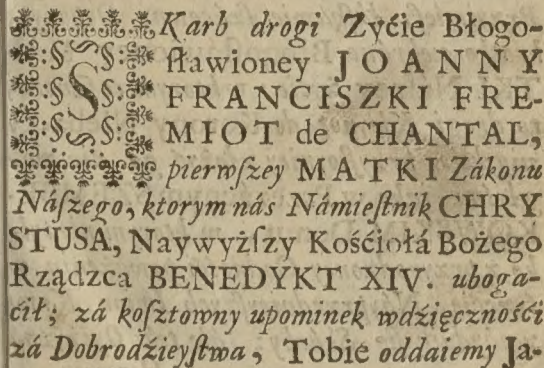 SKarb drogi Zyćie Błogo-
ſławioney JOANNY
FRANCISZKI FRE-
MIOT de CHANTAL,
pierwſzey MATKI Zákonu
Náſzego, ktorym nás Námieſtnik CHRY
STUSA, Naywyżſzy Kośćiołá Bożego
Rządzca BENEDYKT XIV. uboga-
ćił; zá koſztowny upominek wdźięcznośći
zá Dobrodźieyſtwa, Tobie oddaiemy Ja-